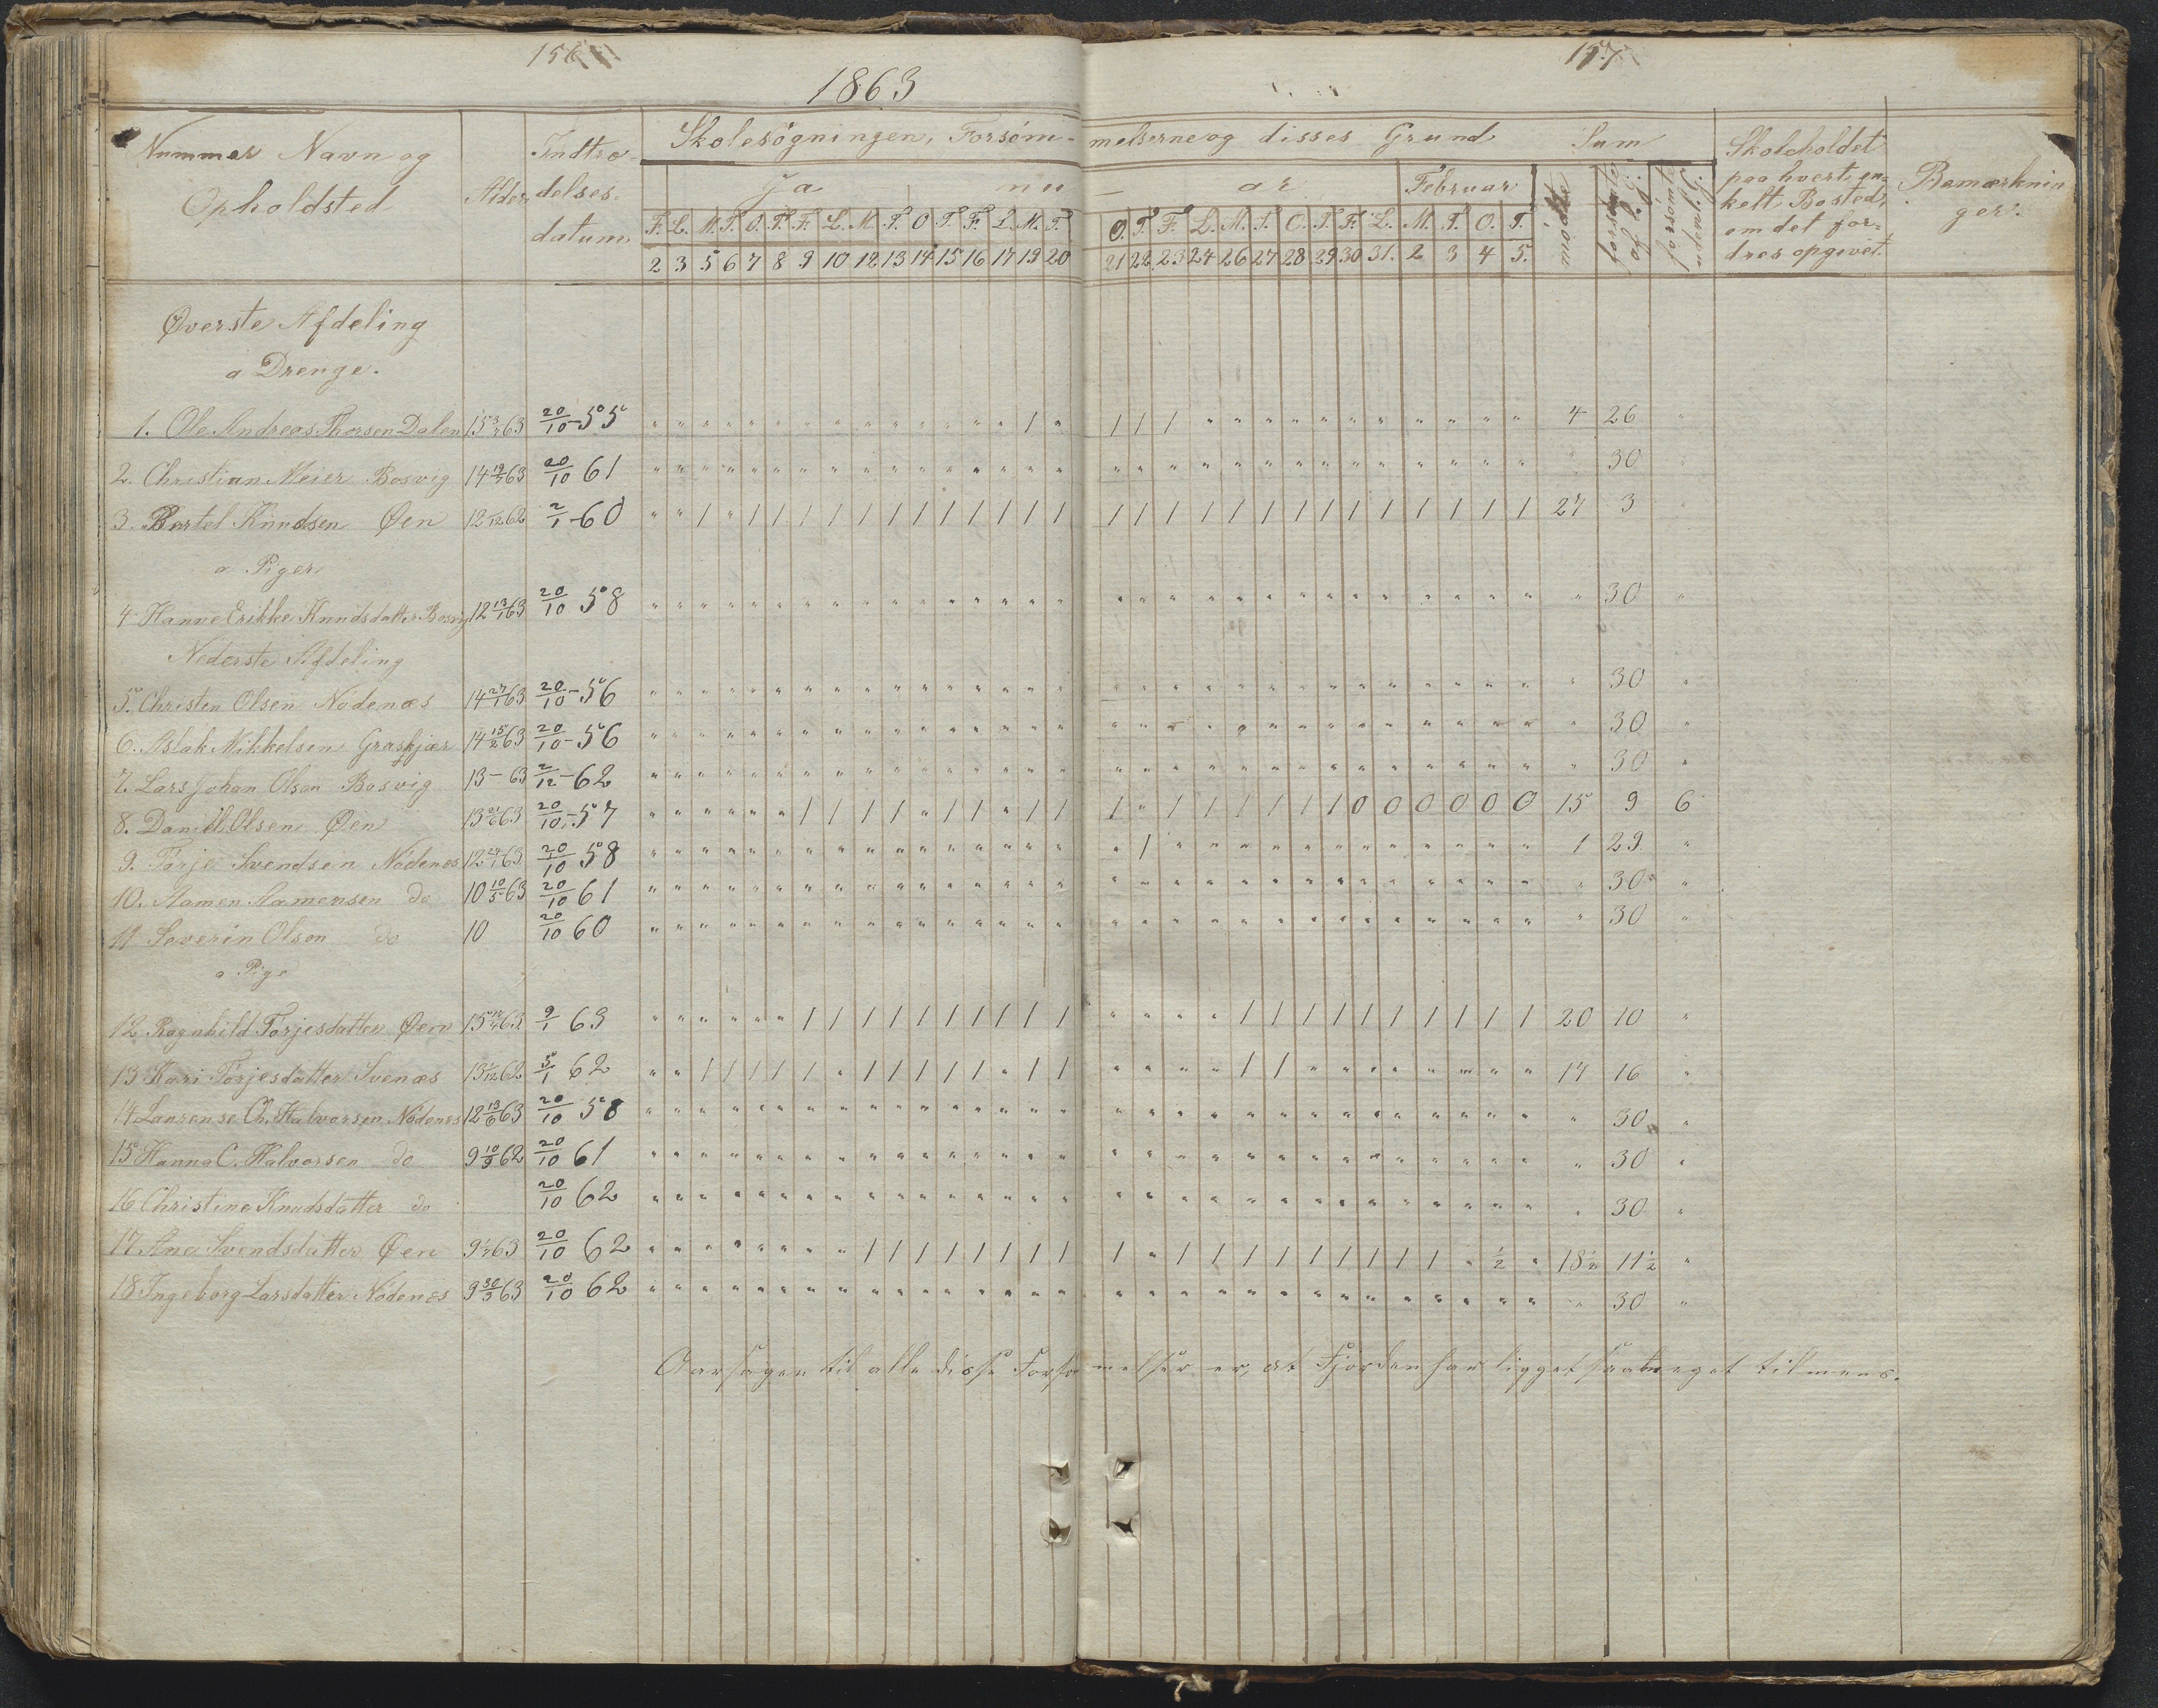 156
157
1863
Nummer Navn og Opholdsted
Alder
Indtræ-
delses.
datum.
Skolesögningen, Forsöm- melserne og disses Grund
Sum
Skoleholdet
paa hvert en-
kelt Bosted,
om det for-
dres opgivet.
Bemærknin
ger.
Ja nu ar
Februar
mödte
forsömte af l. G.
forsömte udenl. G.
F. L. M. T. O. T. F. L. M. T. O T. F. L. M. T. O. T. F. L. M. T. O. T. F. L. M. T. O. T.
2 3 5 6 7 8 9 10 12 13 14 15 16 17 19 20 21 22 23 24 26 27 28 29 30 31. 2 3 4 5.
Øverste Afdeling
a Drenge.
1. Ole Andreas Thorsen Dalen 20/10-55 " " " " " " " " " " " " " " 1 " 1 1 1 " " " " " " " " " " " 4 26 "
2. Christian Meier Bosvig 14 19/7 63 20/10 61 " " " " " " " " " " " " " " " " " " " " " " " " " " " " " " " 30 "
3. Bertel Knudsen Øen 12 /12 62 2/1-60 " " 1 " 1 1 1 1 1 1 1 1 1 1 1 1 1 1 1 1 1 1 1 1 1 1 1 1 1 1 27 3 "
a Piger
4 Hanne Erikke Knudsdatter Bosvig 12 13/1 63 20/10 58 " " " " " " " " " " " " " " " " " " " " " " " " " " " " " " " 30 "
Nederste Afdeling
5. Christen Olsen Nödenæs 14 27/1 63 20/10-56 " " " " " " " " " " " " " " " " " " " " " " " " " " " " " " " 30 "
6. Aslak Mikkelsen Graskjær 14 15/2 63 20/10-56 " " " " " " " " " " " " " " " " " " " " " " " " " " " " " " " 30 "
7. Lars Johan Olsen Bosvig 13 - 63 2/12-62 " " " " " " " " " " " " " " " " " " " " " " " " " " " " " " " 30 "
8. Daniel Olsen Øen 20/10-57 " " " " " " 1 1 1 1 " 1 1 " 1 1 1 " 1 1 1 1 1 1 0 0 0 0 0 0 15 9 6
9. Tarje Svendsen Nödenæs 12 29/1 63 20/10 58 " " " " " " " " " " " " " " " " " 1 " " " " " " " " " " " " 1 29. "
10. Aamen Aamensen do 10 10/5 63 20/10 61 " " " " " " " " " " " " " " " " " " " " " " " " " " " " " " " 30 "
11 Severin Olsen do 10 20/10 60 " " " " " " " " " " " " " " " " " " " " " " " " " " " " " " " 30 "
a Pige
12 Ragnhild Torjesdatter Øen 9/1 63 " " " " " " 1 1 1 1 1 1 1 1 1 1 " " " " 1 1 1 1 1 1 1 1 1 1 20 10 "
13 Kari Torjesdatter Svenæs 5/1 62 " " 1 1 1 1 1 " 1 1 1 1 1 " 1 1 " " " " 1 1 " " " " " " " " 14 16 "
14 Laurense Ch. Halvorsen Nödenæs 12 13/6 63 20/10 58 " " " " " " " " " " " " " " " " " " " " " " " " " " " " " " " 30 "
15 Hanna C. Halvorsen do 9 10/9 62 20/10 61 " " " " " " " " " " " " " " " " " " " " " " " " " " " " " " " 30 "
16 Christine Knudsdatter do 20/10 62 " " " " " " " " " " " " " " " " " " " " " " " " " " " " " " " 30 "
17 Ane Svendsdatter Øen 20/10 62 " " " " " " " " 1 1 1 1 1 1 1 1 1 " 1 1 1 1 1 1 1 1 1 " 1/2 " 18 1/2 11 1/2 "
18 Ingeborg Larsdatter Nödenæs 9 30/3 63 20/10 62 " " " " " " " " " " " " " " " " " " " " " " " " " " " " " " " 30 "
Aarsagen til alle disse Forsømmelser er, at Fjorden har ligget saa meget tilmens.